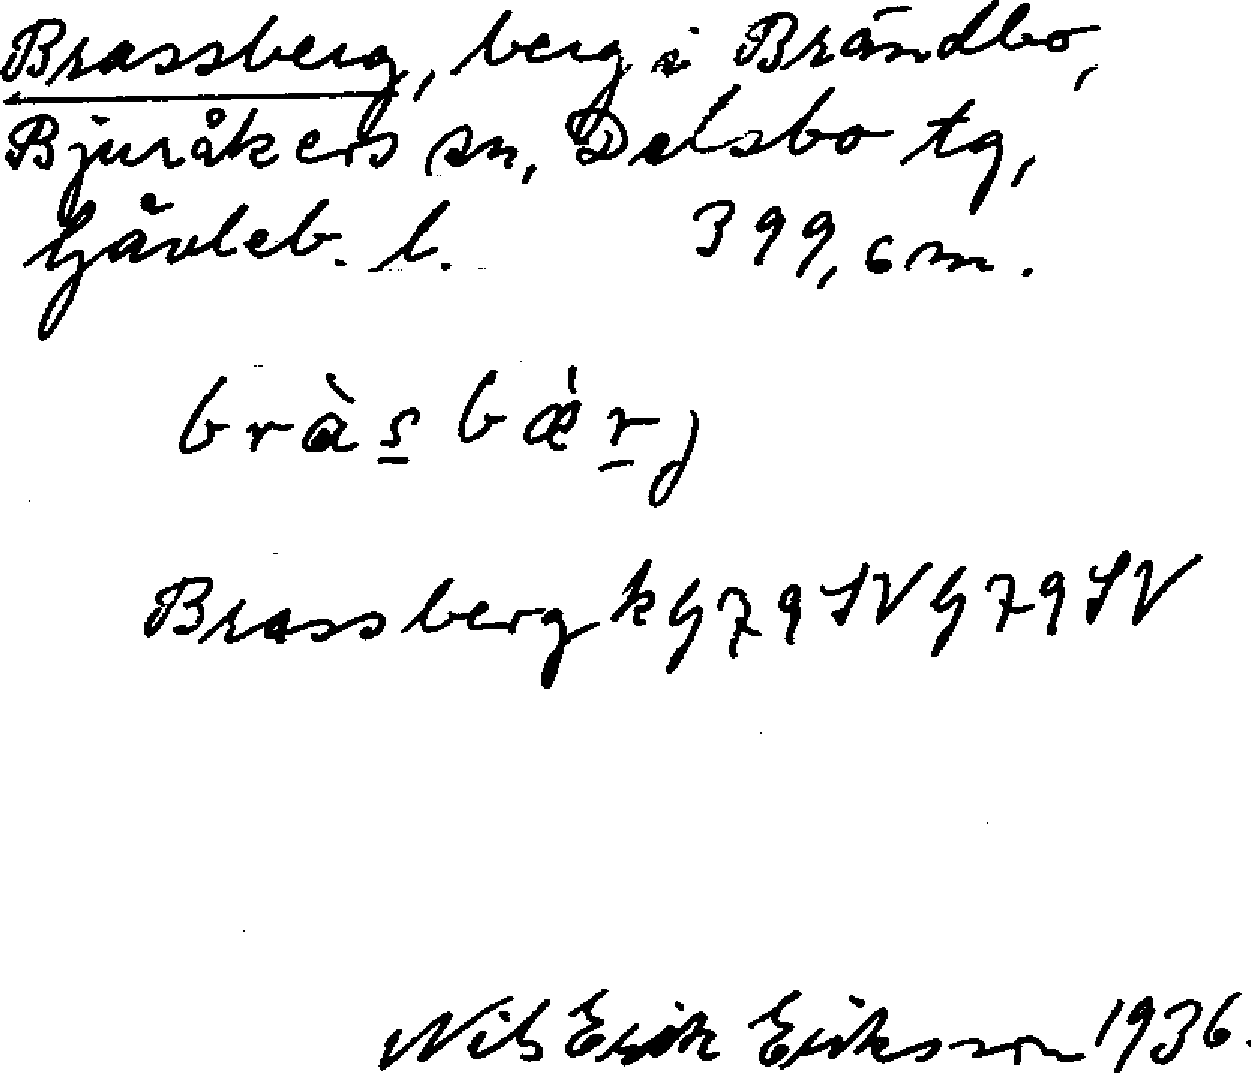 Brassberg, berg i Brändbo,
Bjuråkers sn, Delsbo tg,
Gävleb. l. 399,6 m.
bràsbǽrj
Brassberg k G79SV G79SV
Nils Erik Eriksson 1936.